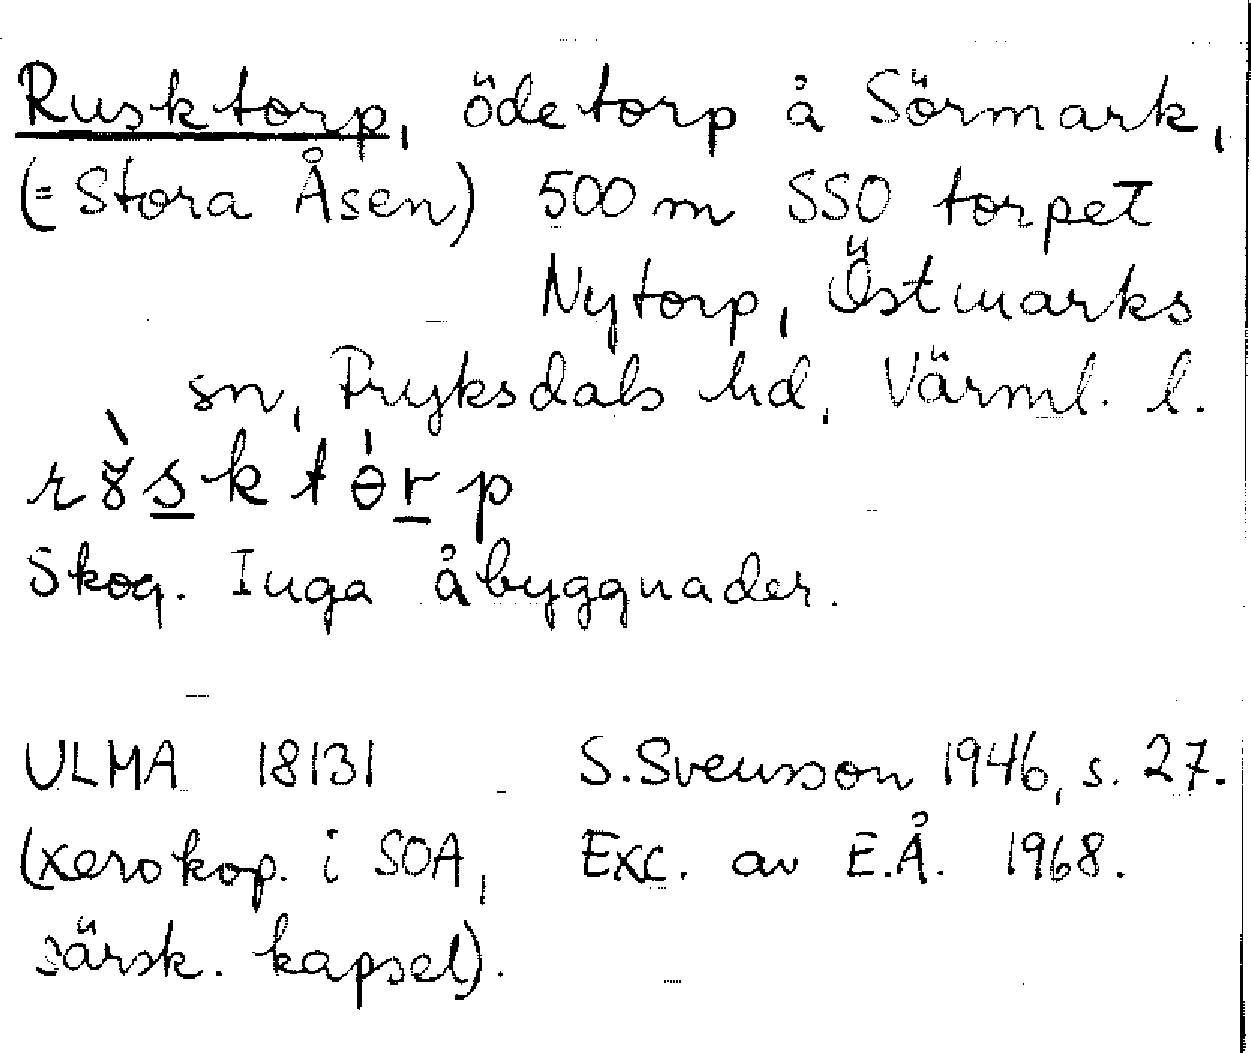 Rusktorp, ödetorp å Sörmark,
(= Stora Åsen) 500 m SSO torpet
Nytorp, Östmarks
sn, Fryksdals hd, Värml. l.
Skog. Inga åbyggnader.
ULMA 18131 S. Svensson 1946, s. 27.
(xerokop. i SOA, Exc. av E.Å. 1968.
särsk. kapsel).